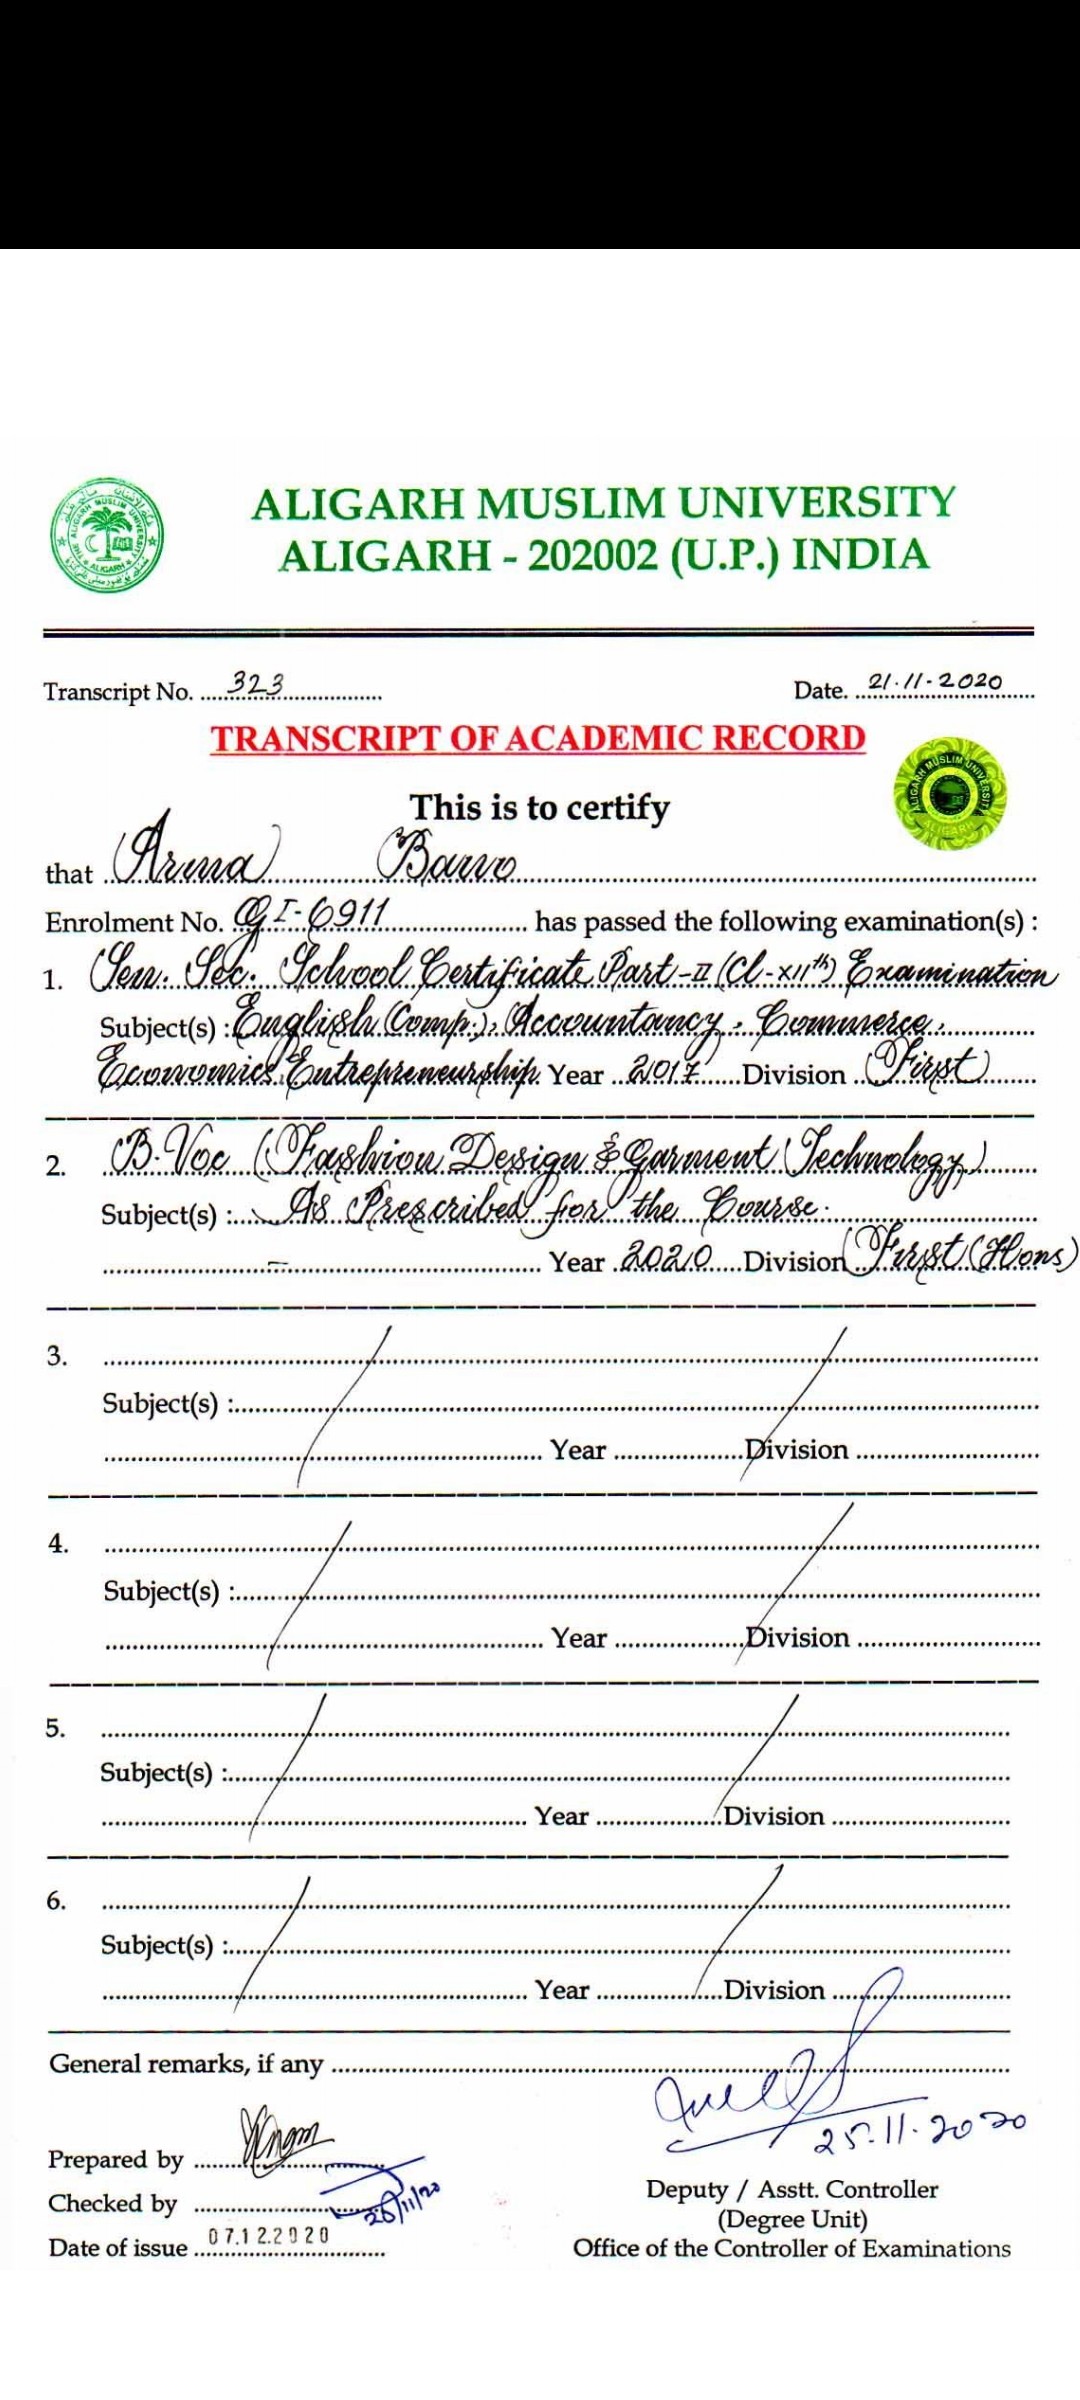 ALIGARH MUSLIM UNIVERSITY
ALIGARH - 202002 (U.P.) INDIA
THE ALIGARH MUSLIM UNIVERSITY
ALIGARH
Transcript No. 323
Date. 21.11-2020
TRANSCRIPT OF ACADEMIC RECORD
ALIGARH MUSLIM UNIVERSITY
ALIGARH
This is to certify
that Arma Bano
Enrolment No. GI-6911 has passed the following examination(s) :
1. Sen. Sec. School Certificate Part-II (Cl-XIIth) Examination
Subject(s) : English (Comp.), Accountancy, Commerce,
Economics, Entrepreneurship. Year 2017 Division First
2. B.Voc (Fashion Design & Garment Technology)
Subject(s) : As Prescribed for the Course.
- Year 2020 Division First (Hons)
3.
Subject(s) :
Year Division
4.
Subject(s) :
Year Division
5.
Subject(s) :
Year Division
6.
Subject(s) :
Year Division
General remarks, if any
25.11.2020
Prepared by
Checked by 26/11/20
Date of issue 07.12.2020
Deputy / Asstt. Controller
(Degree Unit)
Office of the Controller of Examinations